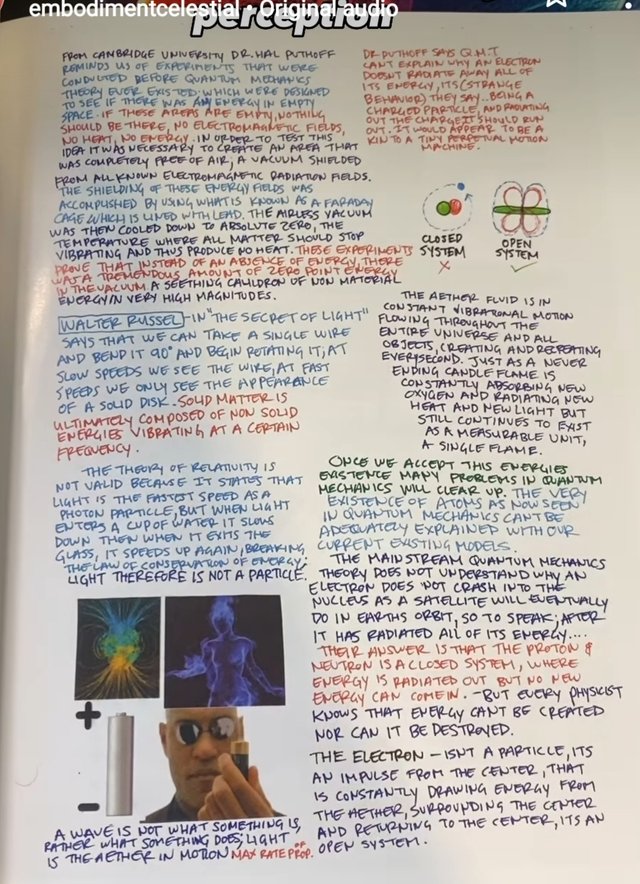 embodimentcelestial · Original audio
perception
FROM CAMBRIDGE UNIVERSITY DR. HAL PUTHOFF
REMINDS US OF EXPERIMENTS THAT WERE
CONDUCTED BEFORE QUANTUM MECHANICS
THEORY EVER EXISTED; WHICH WERE DESIGNED
TO SEE IF THERE WAS ANY ENERGY IN EMPTY
SPACE. IF THESE AREAS ARE EMPTY, NOTHING
SHOULD BE THERE, NO ELECTROMAGNETIC FIELDS,
NO HEAT, NO ENERGY. IN ORDER TO TEST THIS
IDEA IT WAS NECESSARY TO CREATE AN AREA THAT
WAS COMPLETELY FREE OF AIR; A VACUUM SHIELDED
FROM ALL KNOWN ELECTROMAGNETIC RADIATION FIELDS.
THE SHIELDING OF THESE ENERGY FIELDS WAS
ACCOMPLISHED BY USING WHAT IS KNOWN AS A FARADAY
CAGE WHICH IS LINED WITH LEAD. THE AIRLESS VACUUM
WAS THEN COOLED DOWN TO ABSOLUTE ZERO, THE
TEMPERATURE WHERE ALL MATTER SHOULD STOP
VIBRATING AND THUS PRODUCE NO HEAT. THESE EXPERIMENTS
PROVE THAT INSTEAD OF AN ABSENCE OF ENERGY, THERE
WAS A TREMENDOUS AMOUNT OF ZERO POINT ENERGY
IN THE VACUUM A SEETHING CAULDRON OF NON MATERIAL
ENERGY IN VERY HIGH MAGNITUDES.
DR PUTHOFF SAYS Q.M.T
CAN'T EXPLAIN WHY AN ELECTRON
DOESN'T RADIATE AWAY ALL OF
ITS ENERGY, ITS (STRANGE
BEHAVIOR) THEY SAY.. BEING A
CHARGED PARTICLE, AND RADIATING
OUT THE CHARGE IT SHOULD RUN
OUT. IT WOULD APPEAR TO BE A
KIN TO A TINY PERPETUAL MOTION
MACHINE.
CLOSED
SYSTEM
OPEN
SYSTEM
WALTER RUSSEL - IN "THE SECRET OF LIGHT"
SAYS THAT WE CAN TAKE A SINGLE WIRE
AND BEND IT 90° AND BEGIN ROTATING IT, AT
SLOW SPEEDS WE SEE THE WIRE, AT FAST
SPEEDS WE ONLY SEE THE APPEARANCE
OF A SOLID DISK. SOLID MATTER IS
ULTIMATELY COMPOSED OF NON SOLID
ENERGIES VIBRATING AT A CERTAIN
FREQUENCY.
THE AETHER FLUID IS IN
CONSTANT VIBRATIONAL MOTION
FLOWING THROUGHOUT THE
ENTIRE UNIVERSE AND ALL
OBJECTS, CREATING AND RECREATING
EVERYSECOND. JUST AS A NEVER
ENDING CANDLE FLAME IS
CONSTANTLY ABSORBING NEW
OXYGEN AND RADIATING NEW
HEAT AND NEW LIGHT BUT
STILL CONTINUES TO EXIST
AS A MEASURABLE UNIT,
A SINGLE FLAME.
THE THEORY OF RELATIVITY IS
NOT VALID BECAUSE IT STATES THAT
LIGHT IS THE FASTEST SPEED AS A
PHOTON PARTICLE, BUT WHEN LIGHT
ENTERS A CUP OF WATER IT SLOWS
DOWN THEN WHEN IT EXITS THE
GLASS, IT SPEEDS UP AGAIN, BREAKING
THE LAW OF CONSERVATION OF ENERGY;
LIGHT THEREFORE IS NOT A PARTICLE.
ONCE WE ACCEPT THIS ENERGIES
EXISTENCE MANY PROBLEMS IN QUANTUM
MECHANICS WILL CLEAR UP. THE VERY
EXISTENCE OF ATOMS AS NOW SEEN
IN QUANTUM MECHANICS CANT BE
ADEQUATELY EXPLAINED WITH OUR
CURRENT EXISTING MODELS.
THE MAINSTREAM QUANTUM MECHANICS
THEORY DOES NOT UNDERSTAND WHY AN
ELECTRON DOES NOT CRASH INTO THE
NUCLEUS AS A SATELLITE WILL EVENTUALLY
DO IN EARTHS ORBIT, SO TO SPEAK; AFTER
IT HAS RADIATED ALL OF ITS ENERGY....
THEIR ANSWER IS THAT THE PROTON &
NEUTRON IS A CLOSED SYSTEM, WHERE
ENERGY IS RADIATED OUT BUT NO NEW
ENERGY CAN COME IN. - BUT EVERY PHYSICIST
KNOWS THAT ENERGY CANT BE CREATED
NOR CAN IT BE DESTROYED.
THE ELECTRON - ISNT A PARTICLE, ITS
AN IMPULSE FROM THE CENTER, THAT
IS CONSTANTLY DRAWING ENERGY FROM
THE AETHER, SURROUNDING THE CENTER
AND RETURNING TO THE CENTER, ITS AN
OPEN SYSTEM.
A WAVE IS NOT WHAT SOMETHING IS,
RATHER WHAT SOMETHING DOES; LIGHT
IS THE AETHER IN MOTION MAX RATE OF PROP.